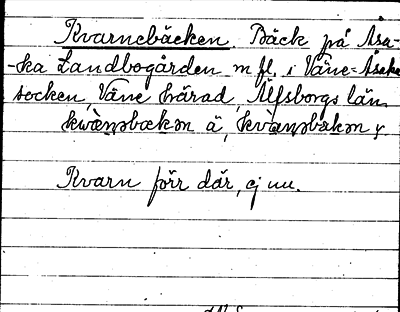 Kvarnebäcken Bäck på Åsa-
-ka Landbogården m fl. i Väne-Åsaka
socken, Väne härad, Älfsborgs län.
kwæ̀ɳbækən ä, kvæɳbækən y
Kvarn förr där, ej nu.